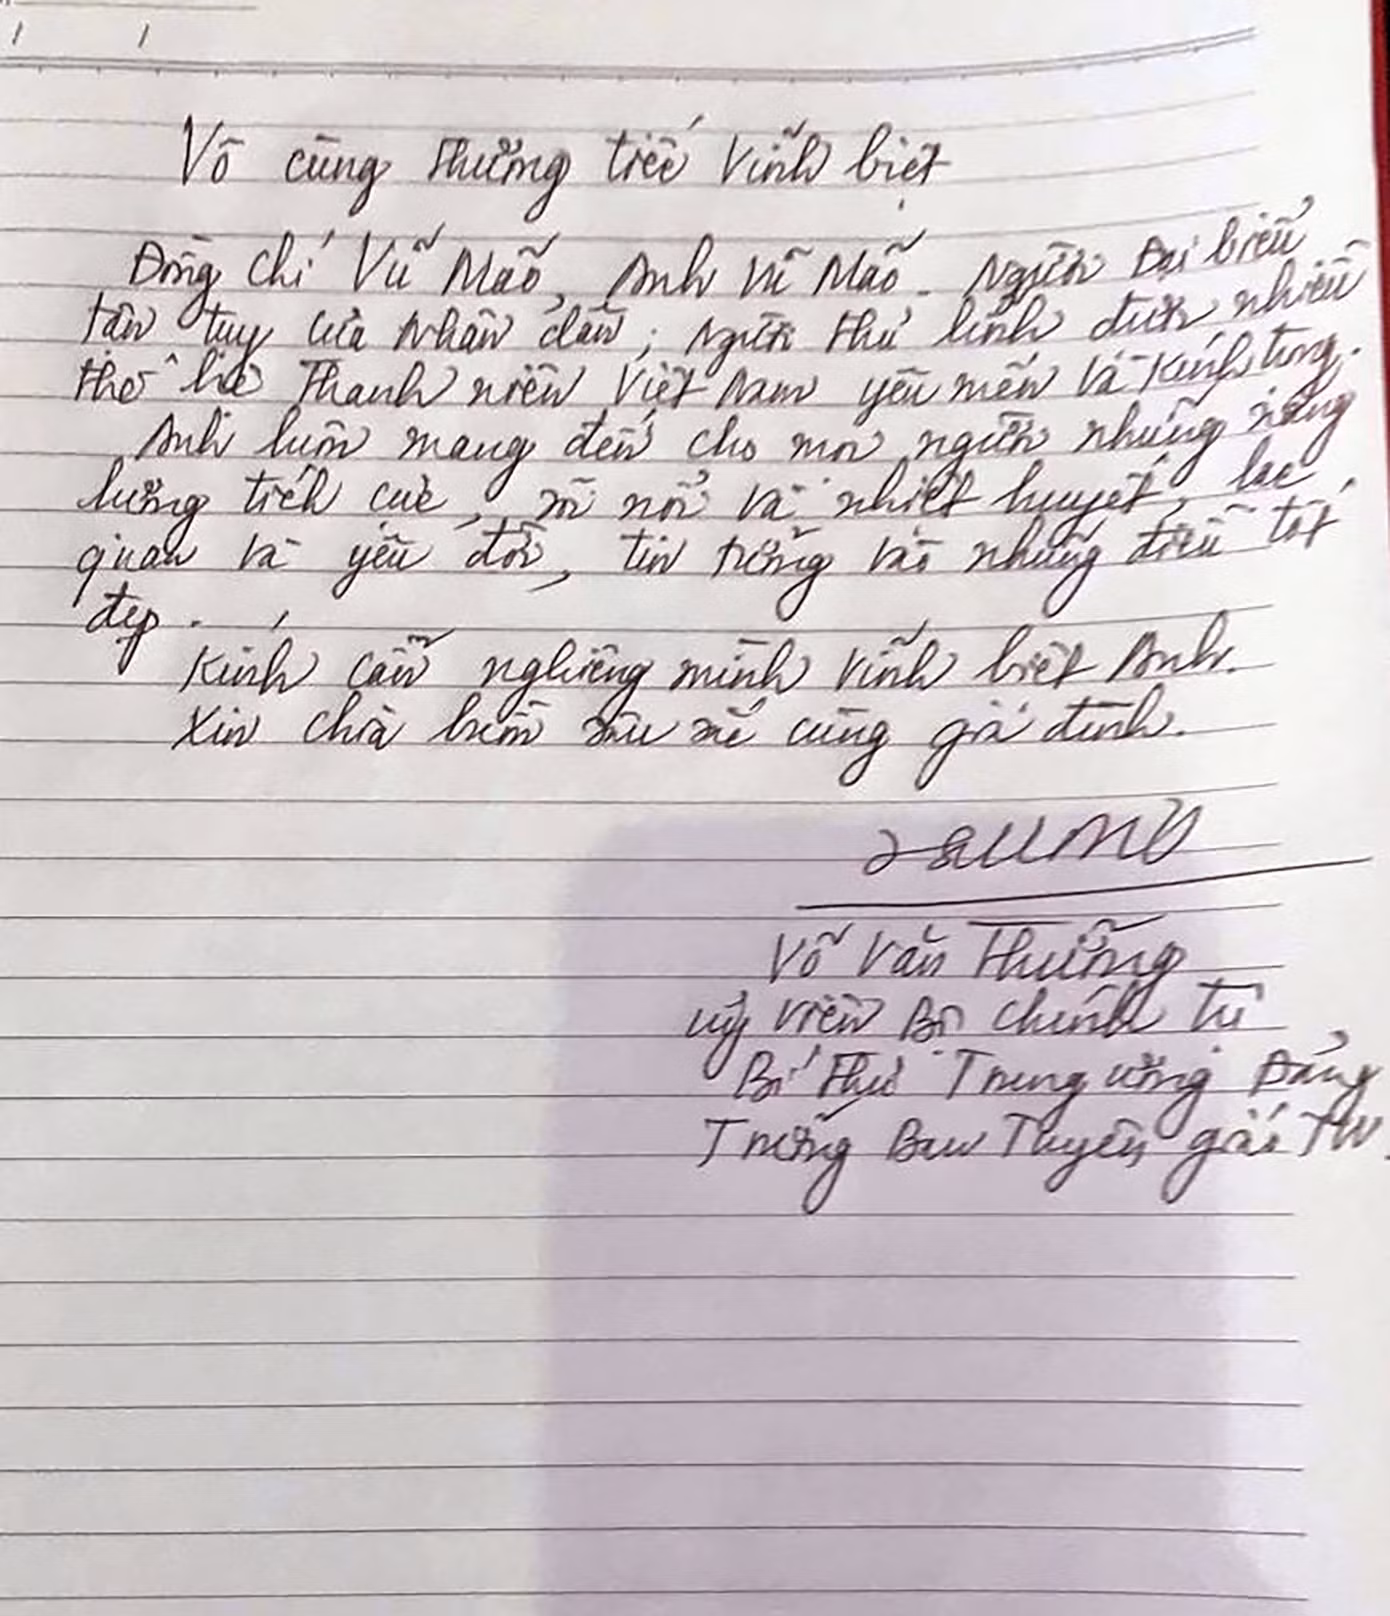 Vô cùng thương tiếc vĩnh biệt
Đồng chí Vũ Mão, Anh Vũ Mão. Người Đại biểu
tận tụy của Nhân dân; Người thủ lĩnh được nhiều
thế hệ Thanh niên Việt Nam yêu mến và kính trọng.
Anh luôn mang đến cho mọi người những năng
lượng tích cực, sôi nổi và nhiệt huyết, lạc
quan và yêu đời, tin tưởng vào những điều tốt
đẹp.
Kính cẩn nghiêng mình vĩnh biệt Anh.
Xin chia buồn sâu sắc cùng gia đình.
Võ Văn Thưởng
Uỷ viên Bộ chính trị
Bí thư Trung ương Đảng
Trưởng Ban Tuyên giáo TW.